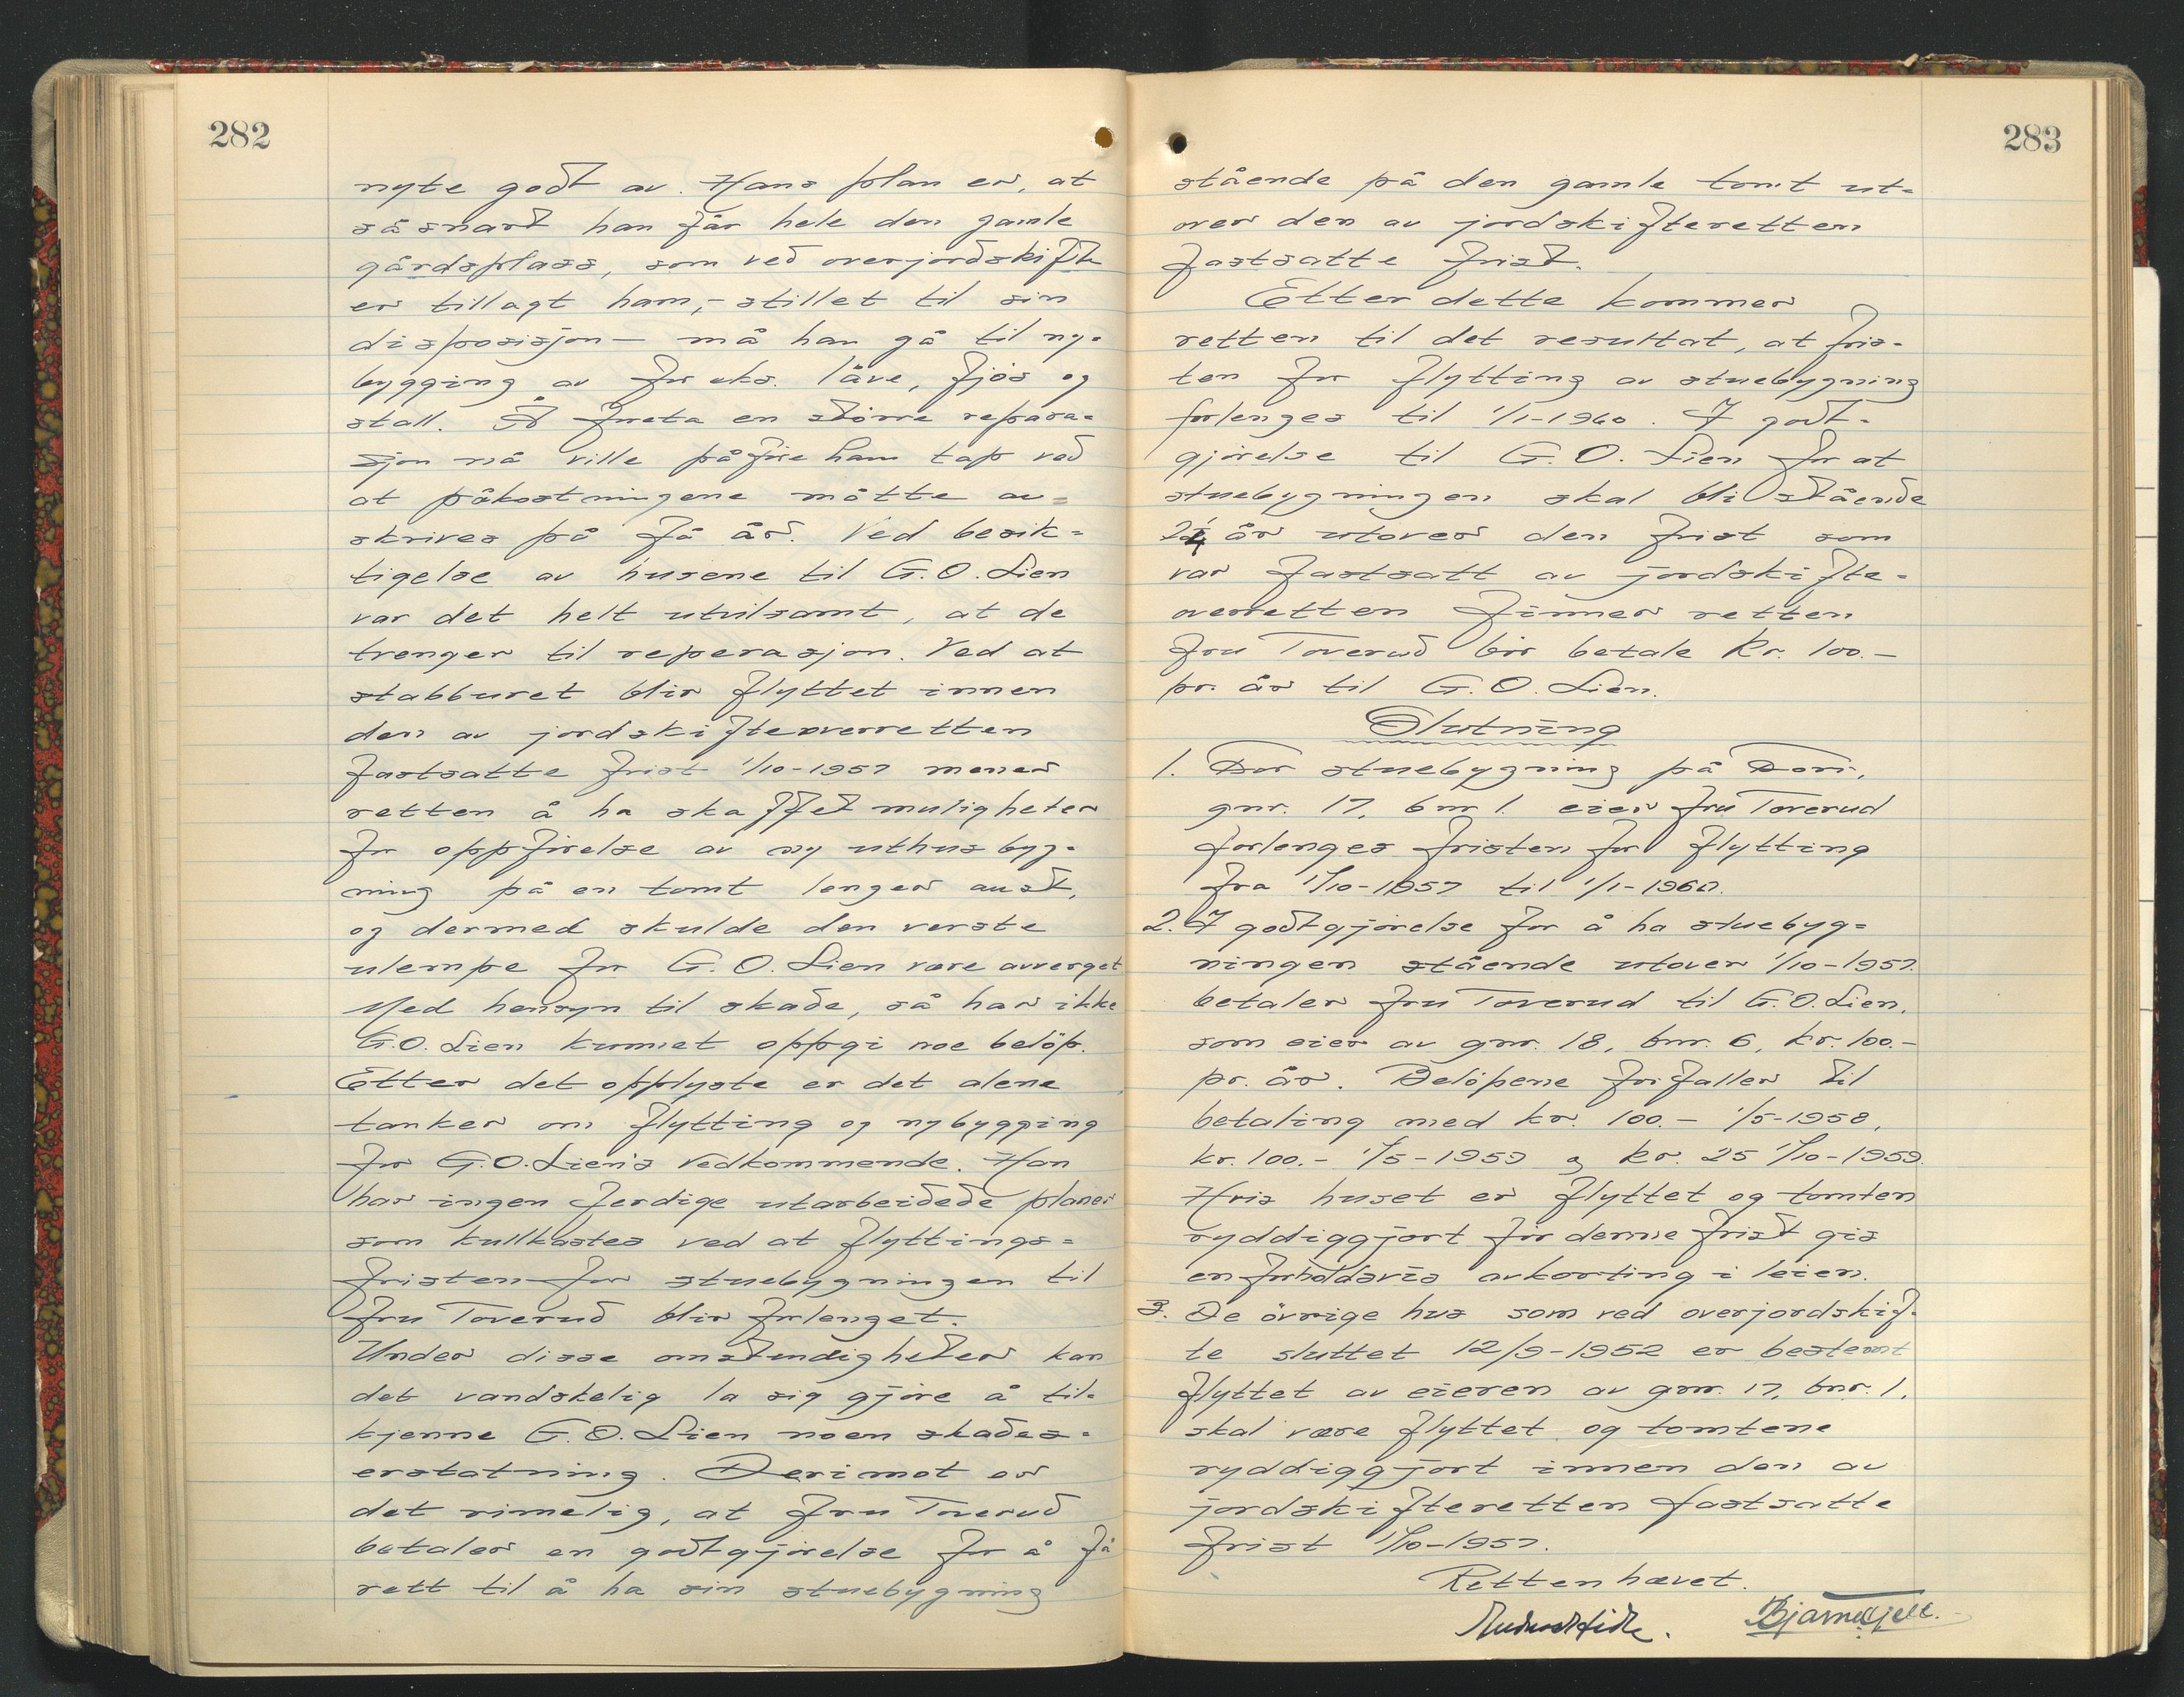 282
nyte godt av. Hans plan er, at
såsnart han får hele den gamle
gårdsplass, som ved overjordskifte
er tillagt ham,- stillet til sin
disposisjon — må han gå til ny-
bygging av for eks. låve, fjös og
stall. Å foreta en större repara-
sjon nå ville påföre ham tap ved
at påkostningene måtte av-
skrives på få år. Ved besik-
tigelse av husene til G.O. Lien
var det helt utvilsamt, at de
trenger til reperasjon. Ved at
stabburet blir flyttet innen
den av jordskifteoverretten
fastsatte frist 1/10-1957 mener
retten å ha skaffet muligheter
for oppförelse av ny uthusbyg-
ning på en tomt lenger aust,
og dermed skulde den verste
ulempe for G.O. Lien være avverget
Med hensyn til skade, så har ikke
G.O. Lien kunnet oppgi noe belöp.
Etter det opplyste er det alene
tanker om flytting og nybygging
for G.O. Lien's vedkommende. Han
har ingen ferdige utarbeidede planer
som kullkastes ved at flyttings-
fristen for stuebygningen til
fru Toverud blir forlenget.
Under disse omstendigheter kan
det vandskelig la sig gjöre å til-
kjenne G.O. Lien noen skades-
erstatning. Derimot er
det rimelig, at fru Toverud
betaler en godtgjörelse for å få
rett til å ha sin stuebygning
283
stående på den gamle tomt ut-
over den av jordskifteretten
fastsatte frist.
Etter dette kommer
retten til det resultat, at fris-
ten for flytting av stuebygning
forlenges til 1/1-1960. I godt-
gjörelse til G.O. Lien for at
stuebygningen skal bli stående
2 1/4 år utover den frist som
var fastsatt av jordskifte-
overretten finner retten
fru Toverud bör betale kr. 100.-
pr. år til G.O. Lien.
Slutning
1. For stuebygning på
gnr. 17, bnr 1. eier fru Toverud
forlenges fristen for flytting
fra 1/10-1957 til 1/1-1960.
2. I godtgjörelse for å ha stuebyg-
ningen stående utover 1/10-1957.
betaler fru Toverud til G.O. Lien,
som eier av gnr. 18, bnr. 6, kr. 100.-
pr. år. Belöpene forfaller til
betaling med kr. 100.- 1/5-1958,
kr. 100.- 1/5-1959 og kr. 25 1/10-1959.
Hvis huset er flyttet og tomten
ryddiggjort för denne frist gis
en forholdsvis avkorting i leien.
3. De övrige hus som ved overjordskif-
te sluttet 12/9-1952 er bestemt
flyttet av eieren av gnr. 17, bnr. 1,
skal være flyttet og tomtene
ryddiggjort innen den av
jordskifteretten fastsatte
frist 1/10-1957.
Retten hevet.
Bjarne